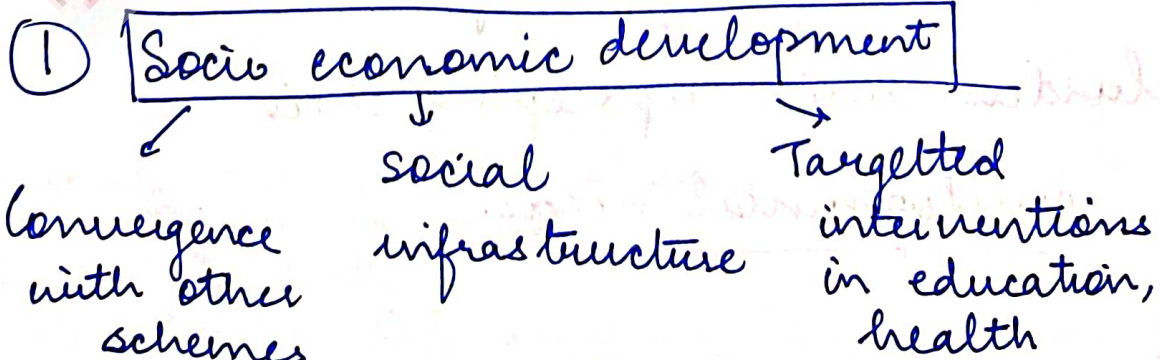 ① Socio economic development
Convergence
with other
schemes
social
infrastructure
Targetted
interventions
in education,
health